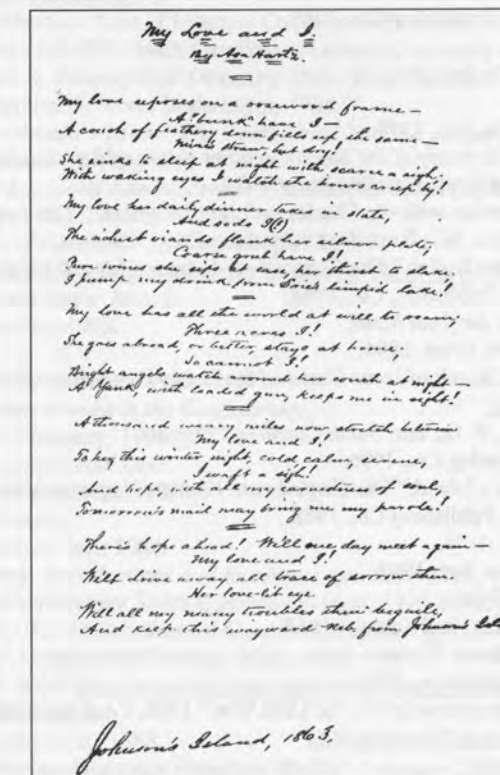 My Love and I.
By Asa Hartz.
My love reposes on a rosewood frame—
A "bunk" have I—
A couch of feathery down fills up the same—
Mine's straw, but dry!
She sinks to sleep at night with scarce a sigh;
With waking eyes I watch the hours creep by!
My love her daily dinner takes in state,
And so do I(?)
The richest viands flank her silver plate;
Coarse grub have I!
Pure wines she sips at ease, her thirst to slake;
I pump my drink from Erie's limpid lake!
My love has all the world at will to roam;
Three acres I!
She goes abroad, or better, stays at home;
So cannot I!
Bright angels watch around her couch at night—
A Yank, with loaded gun, keeps me in sight!
A thousand weary miles now stretch between
My love and I!
To her, this winter night, cold calm, serene,
I waft a sigh!
And hope, with all my earnestness of soul,
Tomorrow's mail may bring me my parole!
There's hope ahead! Will one day meet again—
My love and I!
Will drive away all trace of sorrow then:
Her love-lit eye
Will all my many troubles then beguile,
And keep this wayward Reb from Johnson's Isle
Johnson's Island, 1863.